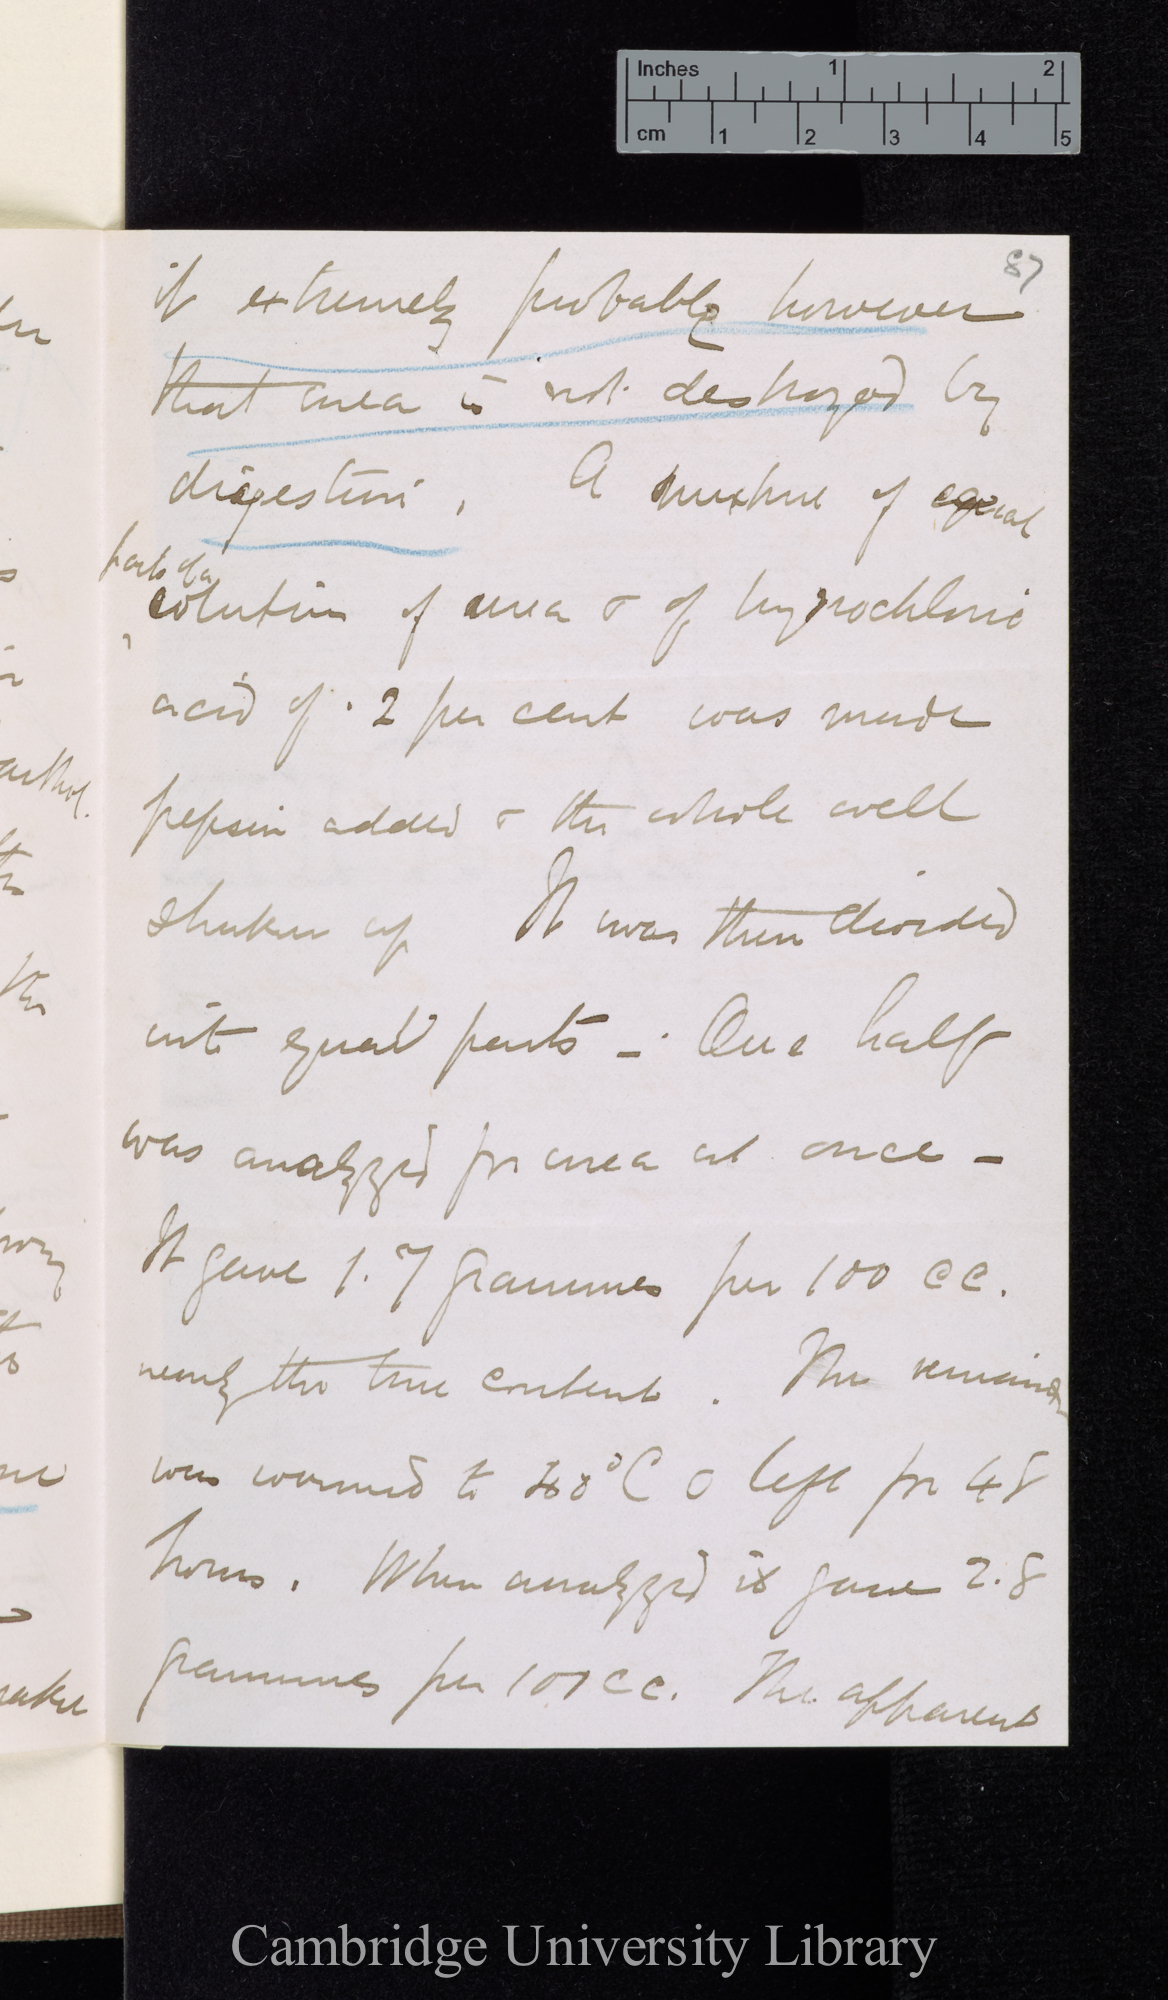 Inches 1 2
cm 1 2 3 4 5
87
it extremely probable however
that urea is not destroyed by
digestion. A mixture of equal
parts of a
solution of urea & of hydrochloric
acid of .2 per cent was made
pepsin added & the whole well
shaken up It was then divided
into equal parts – One half
was analyzed for urea at once –
It gave 1.7 grammes per 100 cc.
nearly the true content. The remainder
was warmed to °C & left for 48
hours. When analyzed it gave 2.8
grammes per 100 cc. The apparent
Cambridge University Library